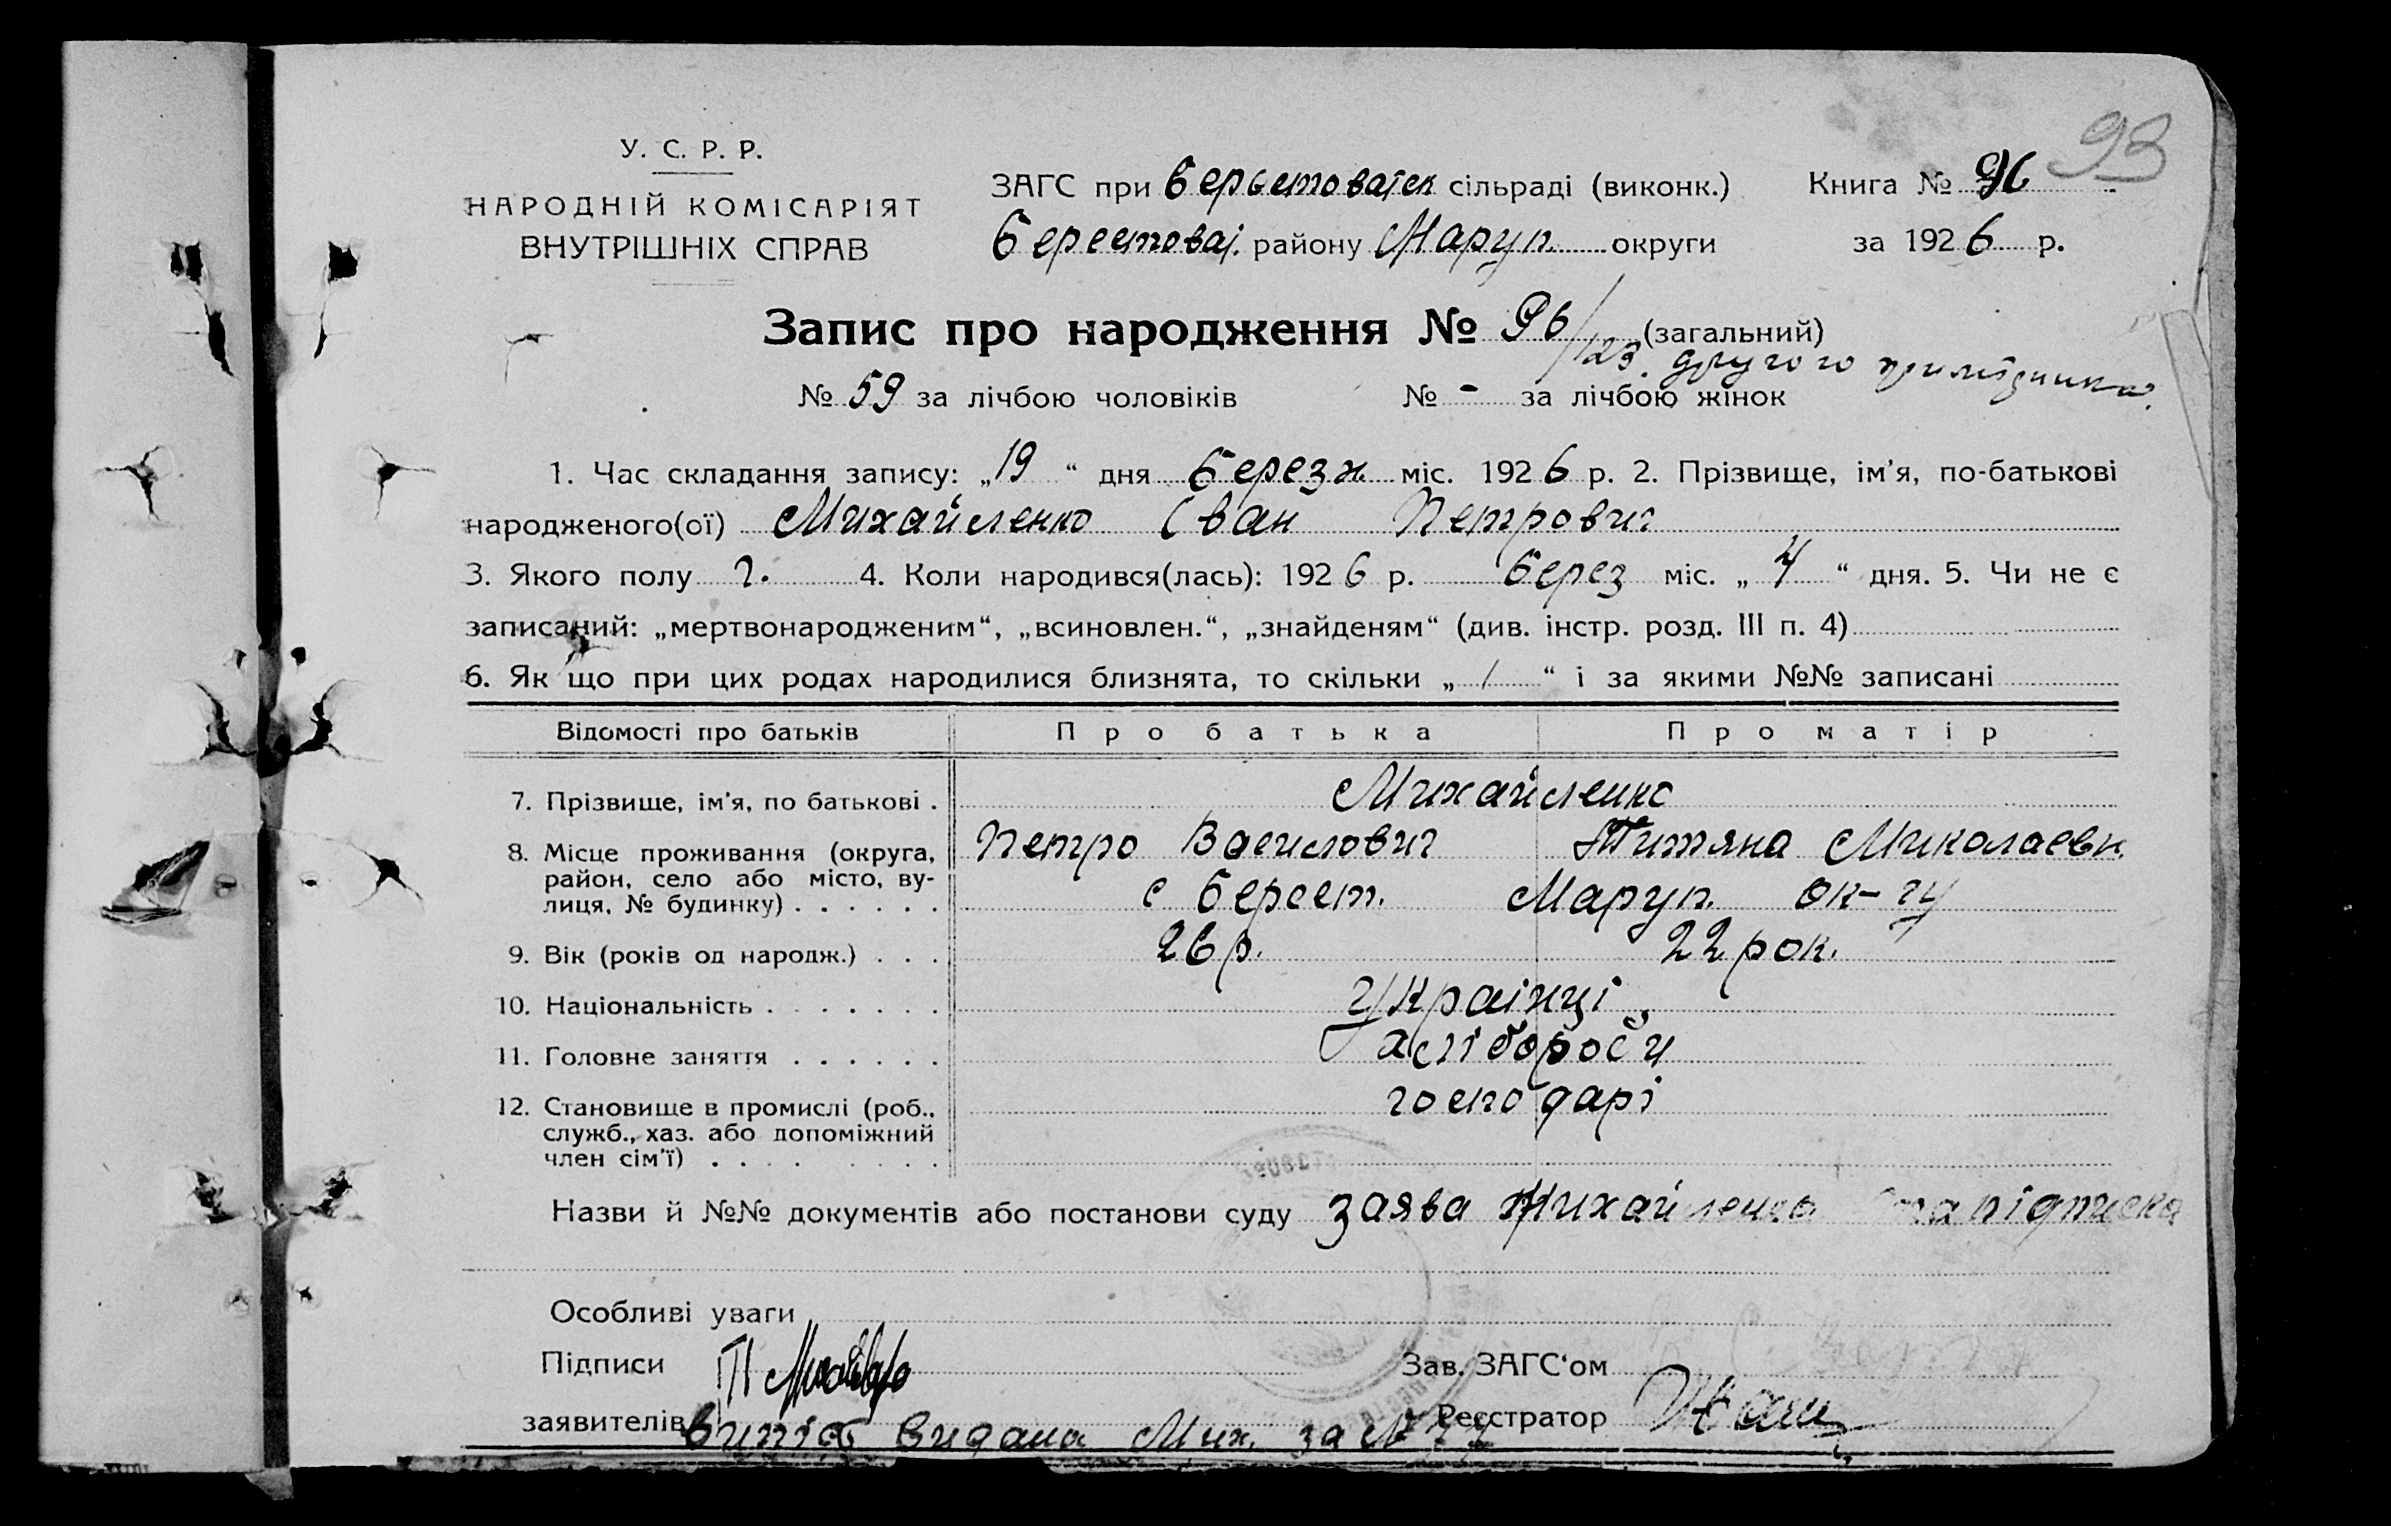 93
У. С. Р. Р.
НАРОДНІЙ КОМІСАРІЯТ
ВНУТРІШНІХ СПРАВ
ЗАГС при Берестоватск сільраді (виконк.) Книга № 96
Берестоват. району Маруп. округи за 1926 р.
Запис про народження № 96/123 (загальний)
другого примірника.
№ 59 за лічбою чоловіків № - за лічбою жінок
1. Час складання запису: „19“ дня Березн. міс. 1926 р. 2. Прізвище, ім'я, по-батькові
народженого(ої) Михайленко Іван Петрович
3. Якого полу ч. 4. Коли народився(лась): 1926 р. берез міс. „4“ дня. 5. Чи не є
записаний: „мертвонародженим“, „всиновлен.“, „знайденям“ (див. інстр. розд. III п. 4)
6. Як що при цих родах народилися близнята, то скільки „/“ і за якими №№ записані
Відомості про батьків Про батька Про матір
7. Прізвище, ім'я, по батькові . Михайленко
8. Місце проживання (округа, Петро Василович Титяна Миколаевн.
район, село або місто, ву-
лиця, № будинку) . . . . . . с Берест. Маруп. ок-гу
9. Вік (років од народж.) . . . 26 р. 22 рок.
10. Національність . . . . . . . Українці
11. Головне заняття . . . . . . хлібороби
12. Становище в промислі (роб., господарі
служб., хаз. або допоміжний
член сім'ї) . . . . . . . .
Назви й №№ документів або постанови суду заява Михайленко та підписка
Особливі уваги
Підписи П Зав. ЗАГС'ом
заявителів Реєстратор
Випіс видана Мих. за №